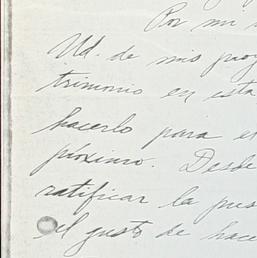 Por mi
Ud. de mis proy
trimonio en esta
hacerlo para e
próximo. Desde
ratificar la pres
el gusto de hace